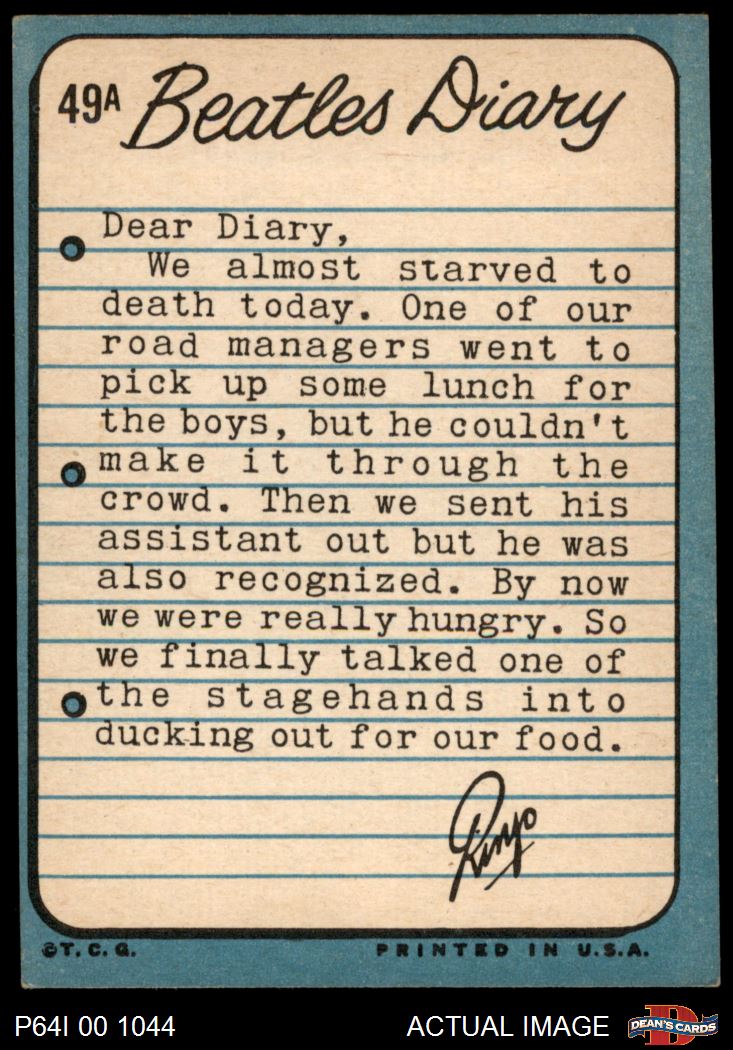 49A Beatles Diary
Dear Diary,
We almost starved to
death today. One of our
road managers went to
pick up some lunch for
the boys, but he couldn't
make it through the
crowd. Then we sent his
assistant out but he was
also recognized. By now
we were really hungry. So
we finally talked one of
the stagehands into
ducking out for our food.
Ringo
©T.C.G. PRINTED IN U.S.A.
P64I 00 1044 ACTUAL IMAGE D DEAN'S CARDS